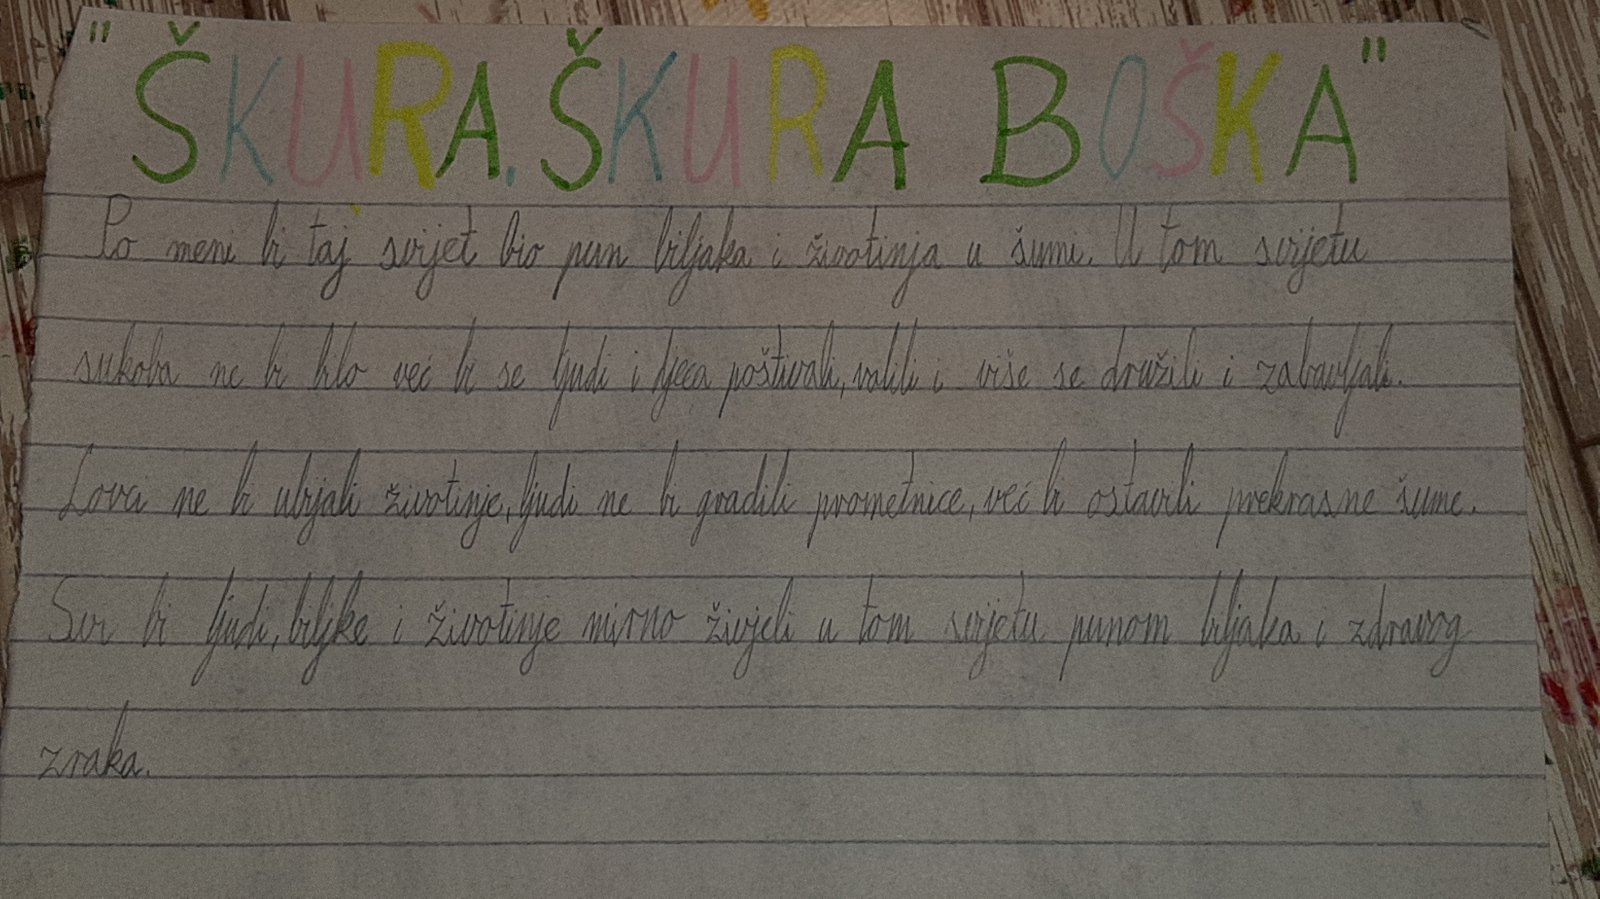 "ŠKURA.ŠKURA BOŠKA"
Po meni bi taj svijet bio pun biljaka i životinja u šumi. U tom svijetu
sukoba ne bi bilo već bi se ljudi i djeca poštivali, volili i više se družili i zabavljali.
Lovci ne bi ubijali životinje, ljudi ne bi gradili prometnice, već bi ostavili prekrasne šume.
Svi bi ljudi, biljke i životinje mirno živjeli u tom svijetu punom biljaka i zdravog
zraka.